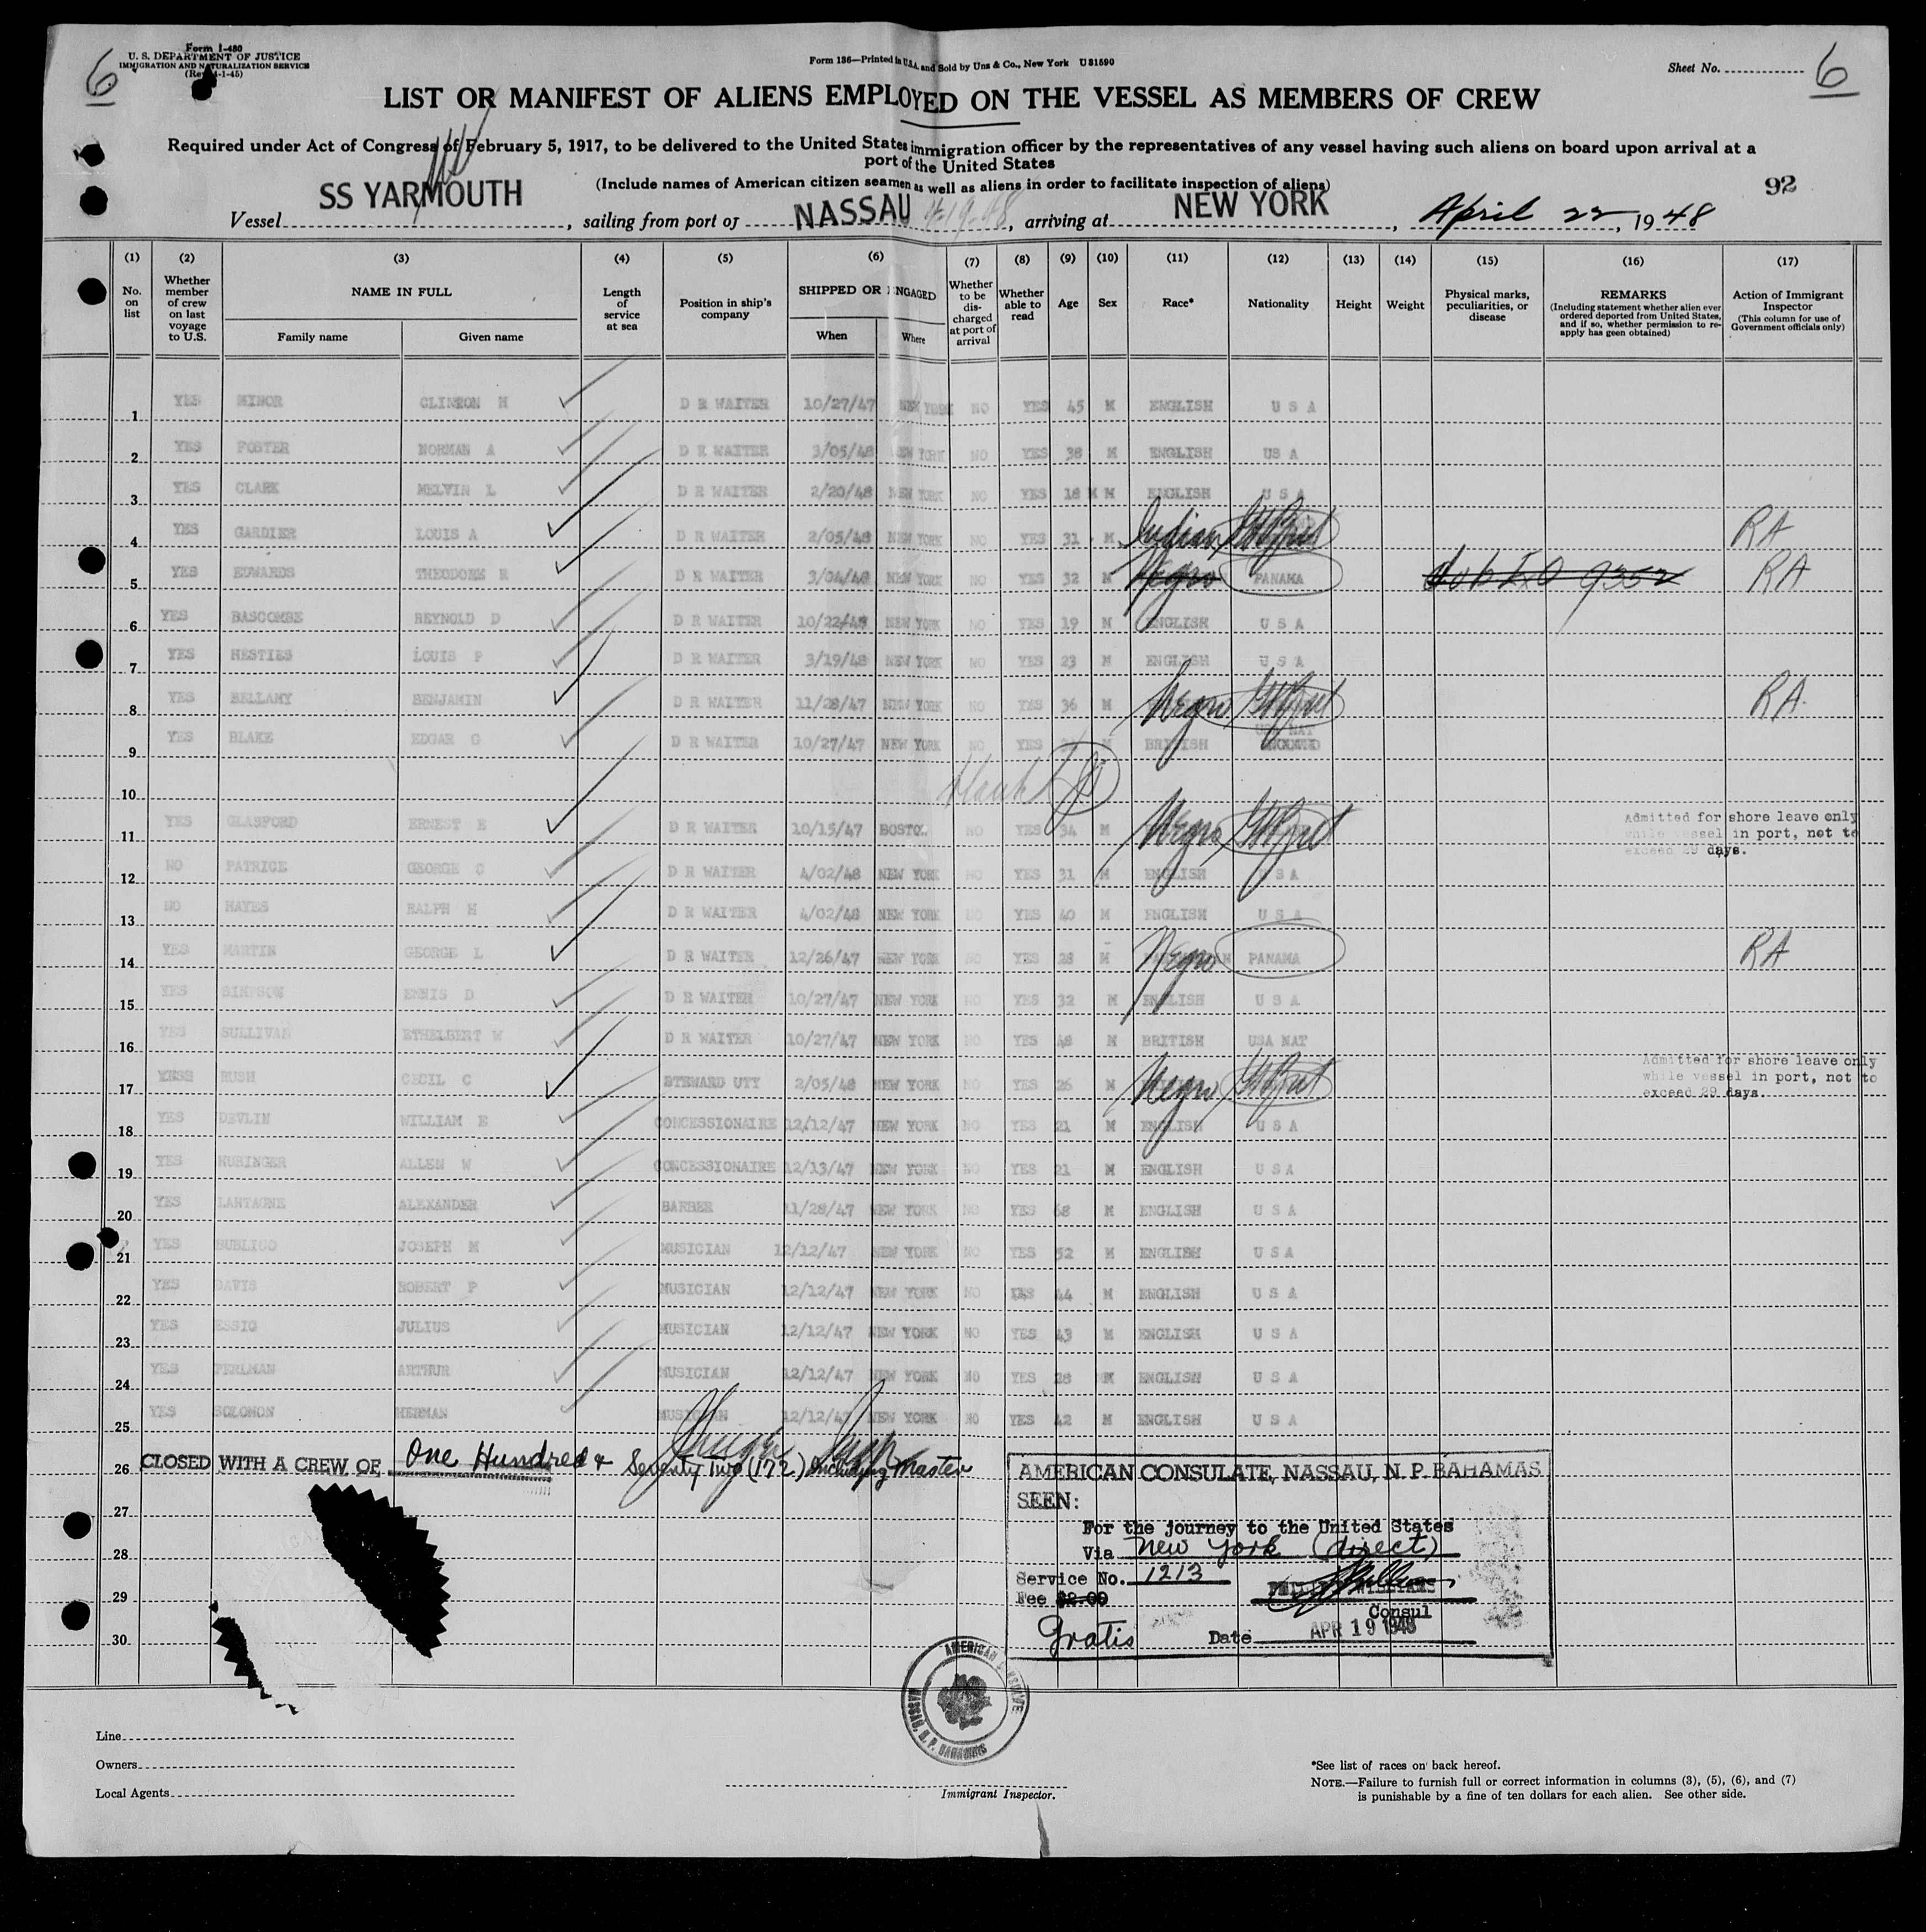 Form I-480
U. S. DEPARTMENT OF JUSTICE
IMMIGRATION AND NATURALIZATION SERVICE
(Rev. 4-1-45)
Form 136—Printed in U.S.A. and Sold by Unz & Co., New York U31590
Sheet No.
6
6
LIST OR MANIFEST OF ALIENS EMPLOYED ON THE VESSEL AS MEMBERS OF CREW
Required under Act of Congress of February 5, 1917, to be delivered to the United States immigration officer by the representatives of any vessel having such aliens on board upon arrival at a
port of the United States
(Include names of American citizen seamen as well as aliens in order to facilitate inspection of aliens)
92
Vessel SS YARMOUTH, sailing from port of NASSAU 4-19-48, arriving at NEW YORK, April 22, 1948
(1) (2) (3) (4) (5) (6) (7) (8) (9) (10) (11) (12) (13) (14) (15) (16) (17)
No. on list
Whether member of crew on last voyage to U.S.
NAME IN FULL
Family name Given name
Length of service at sea
Position in ship's company
SHIPPED OR ENGAGED
When Where
Whether to be discharged at port of arrival
Whether able to read
Age
Sex
Race*
Nationality
Height
Weight
Physical marks, peculiarities, or disease
REMARKS
(Including statement whether alien ever ordered deported from United States, and if so, whether permission to re-apply has been obtained)
Action of Immigrant Inspector
(This column for use of Government officials only)
1 YES MINOR CLINTON H D R WAITER 10/27/47 NEW YORK NO YES 45 M ENGLISH U S A
2 YES FOSTER NORMAN A D R WAITER 3/05/48 NEW YORK NO YES 38 M ENGLISH US A
3 YES CLARK MELVIN L D R WAITER 2/20/48 NEW YORK NO YES 18 M ENGLISH U S A
4 YES GARDIER LOUIS A D R WAITER 2/05/48 NEW YORK NO YES 31 M Indian RA
5 YES EDWARDS THEODORE R D R WAITER 3/04/48 NEW YORK NO YES 32 M Negro PANAMA 9352 RA
6 YES BASCOMBE REYNOLD D D R WAITER 10/22/48 NEW YORK NO YES 19 M ENGLISH U S A
7 YES HESTIES LOUIS P D R WAITER 3/19/48 NEW YORK NO YES 23 M ENGLISH U S A
8 YES BELLAMY BENJAMIN D R WAITER 11/28/47 NEW YORK NO YES 36 M Negro RA
9 YES BLAKE EDGAR G D R WAITER 10/27/47 NEW YORK NO YES M BRITISH USA NAT
10
11 YES GLASFORD ERNEST E D R WAITER 10/15/47 BOSTON NO YES 34 M Negro Admitted for shore leave only
while vessel in port, not to
exceed 29 days.
12 NO PATRICE GEORGE C D R WAITER 4/02/48 NEW YORK NO YES 31 M ENGLISH U S A
13 NO HAYES RALPH H D R WAITER 4/02/48 NEW YORK NO YES 40 M ENGLISH U S A
14 YES MARTIN GEORGE L D R WAITER 12/26/47 NEW YORK NO YES 28 M Negro PANAMA RA
15 YES SIMPSON ENNIS D D R WAITER 10/27/47 NEW YORK NO YES 32 M ENGLISH U S A
16 YES SULLIVAN ETHELBERT W D R WAITER 10/27/47 NEW YORK NO YES 48 M BRITISH USA NAT
17 YES RUSH CECIL C STEWARD UTY 2/05/48 NEW YORK NO YES 26 M Negro Admitted for shore leave only
while vessel in port, not to
exceed 29 days.
18 YES DEVLIN WILLIAM E CONCESSIONAIRE 12/12/47 NEW YORK NO YES 21 M ENGLISH U S A
19 YES HUBINGER ALLEN W CONCESSIONAIRE 12/13/47 NEW YORK NO YES 21 M ENGLISH U S A
20 YES LANTAGNE ALEXANDER BARBER 11/28/47 NEW YORK NO YES 68 M ENGLISH U S A
21 YES SUBLICO JOSEPH M MUSICIAN 12/12/47 NEW YORK NO YES 52 M ENGLISH U S A
22 YES DAVIS ROBERT P MUSICIAN 12/12/47 NEW YORK NO YES 44 M ENGLISH U S A
23 YES ESSIG JULIUS MUSICIAN 12/12/47 NEW YORK NO YES 43 M ENGLISH U S A
24 YES PERLMAN ARTHUR MUSICIAN 12/12/47 NEW YORK NO YES 28 M ENGLISH U S A
25 YES SOLOMON HERMAN MUSICIAN 12/12/47 NEW YORK NO YES 42 M ENGLISH U S A
26 CLOSED WITH A CREW OF One Hundred & Seventy Two (172) including Master
27
28
29
30
AMERICAN CONSULATE, NASSAU, N. P. BAHAMAS
SEEN:
For the journey to the United States
Via New York (direct)
Service No. 1213
Fee $2.00
WILLIAMS
Consul
Gratis Date APR 19 1948
AMERICAN CONSULATE
NASSAU, N. P. BAHAMAS
Line
Owners
Local Agents
Immigrant Inspector.
*See list of races on back hereof.
NOTE.—Failure to furnish full or correct information in columns (3), (5), (6), and (7)
is punishable by a fine of ten dollars for each alien. See other side.